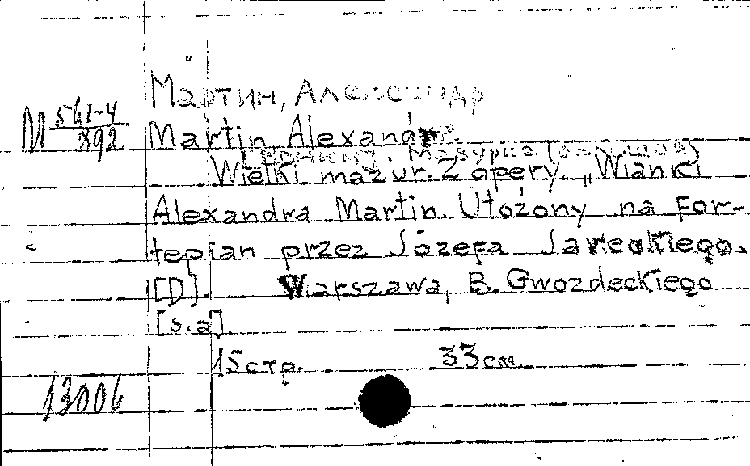 Мартин, Александр
М 541-4
892
Martin Alexandr.
Мазурка
Wielki mazur. Z opery „Wianki
Alexandra Martin. Utożony na For-
tepian przez Józefa Jareckiego.
[D]. Warszawa, B. Gwozdeckiego
[s.a].
15 стр. 33 см.
13006